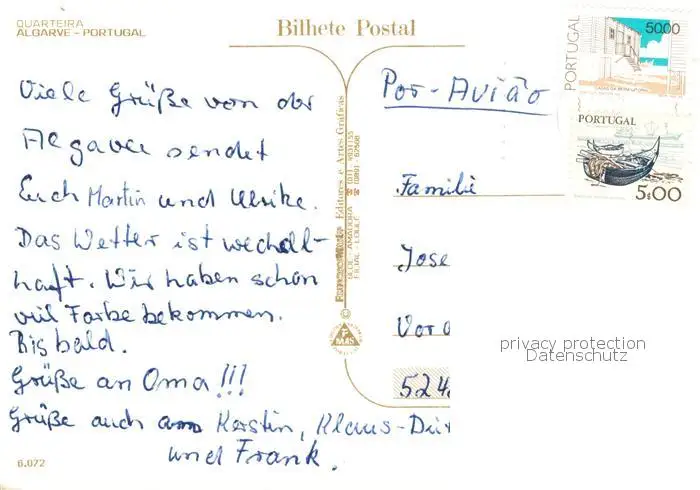 QUARTEIRA
ALGARVE - PORTUGAL
Bilhete Postal
Viele Grüße von der
Algarve sendet
Euch Martin und Ulrike.
Das Wetter ist wechsel-
haft. Wir haben schon
viel Farbe bekommen.
Bis bald.
Grüße an Oma!!!
Grüße auch an Kerstin, Klaus-Dir
und Frank.
6.072
Editores e Artes Gráficas
Por-Avião
Familie
Jose
Vor
524
privacy protection
Datenschutz
PORTUGAL
50.00
PORTUGAL
5$00